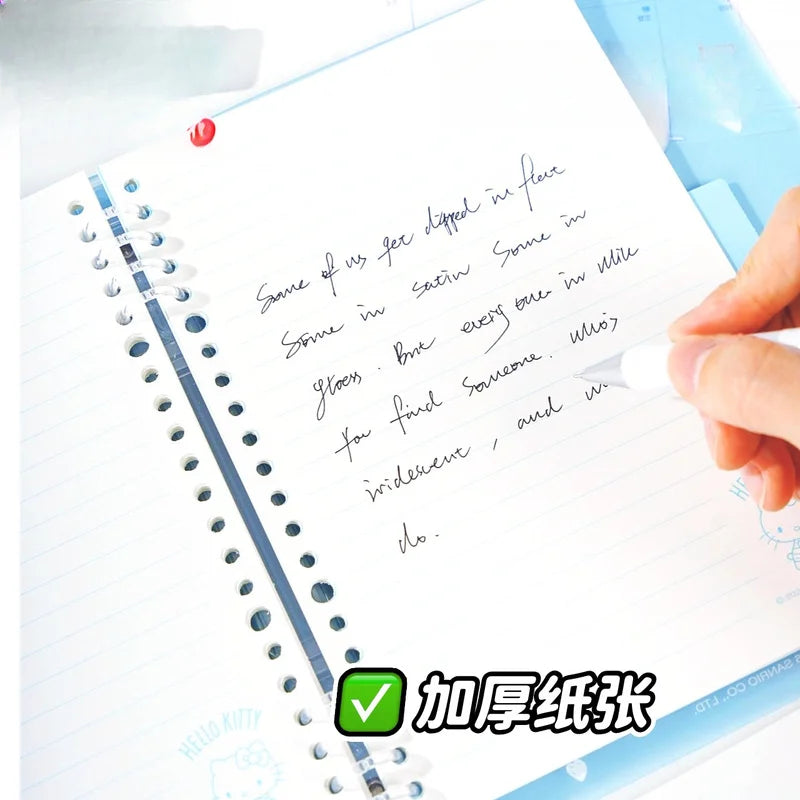 Some of us get dipped in flat
Some in satin Some in
gloss. But every one in while
You find someone. Who's
iridescent, and
do.
HELLO KITTY
SANRIO CO., LTD.
✅ 加厚纸张